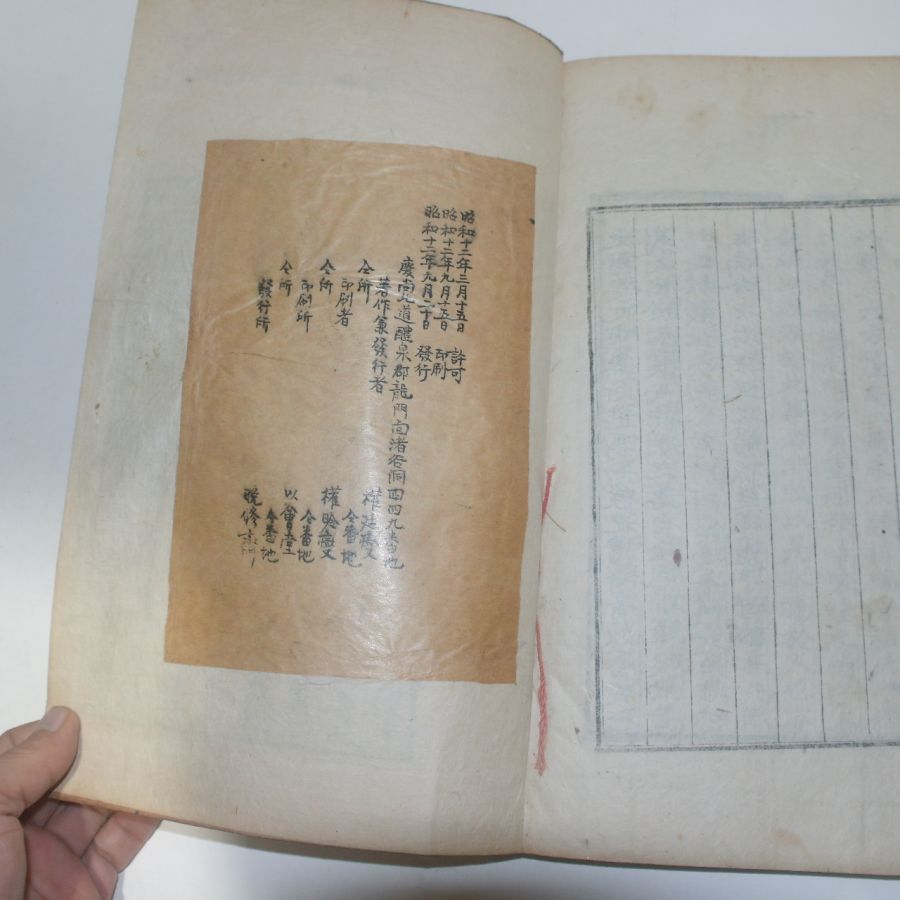 昭和十二年三月十五日 許可
昭和十二年九月十五日 印刷
昭和十二年九月二十日 發行
慶尙北道醴泉郡龍門面渚谷洞四四九番地
著作兼發行者 權
仝所 仝番地
印刷者 權
仝所 仝番地
印刷所 以會堂
仝所 仝番地
發行所 晩修